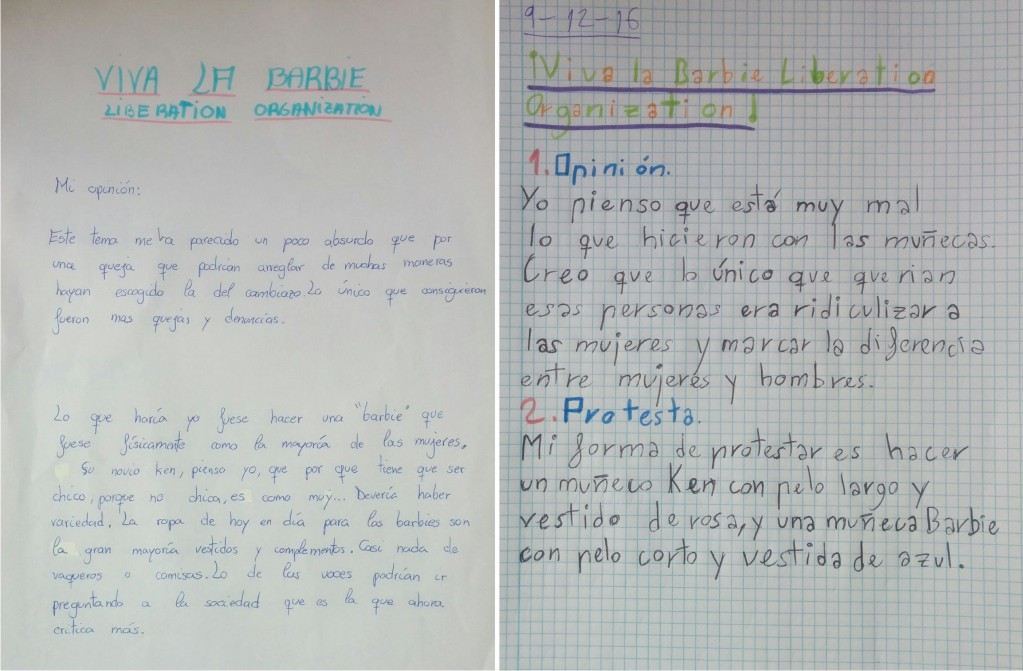 VIVA LA BARBIE
LIBERATION ORGANIZATION
Mi opinión:
Este tema me ha parecido un poco absurdo que por
una queja que podrían arreglar de muchas maneras
hayan escogido la del cambiazo. Lo único que consiguieron
fueron mas quejas y denuncias.
Lo que haría yo fuese hacer una "barbie" que
fuese físicamente como la mayoría de las mujeres,
Su novio ken, pienso yo, que por que tiene que ser
chico, porque no chica, es como muy... Devería haber
variedad. La ropa de hoy en día para las barbies son
la gran mayoría vestidos y complementos. Casi nada de
vaqueros o camisas. Lo de las voces podrían ir
preguntando a la sociedad que es la que ahora
critica más.
9-12-16
¡Viva la Barbie Liberation
Organization!
1. Opinión.
Yo pienso que está muy mal
lo que hicieron con las muñecas.
Creo que lo único que querian
esas personas era ridiculizar a
las mujeres y marcar la diferencia
entre mujeres y hombres.
2. Protesta.
Mi forma de protestar es hacer
un muñeco Ken con pelo largo y
vestido de rosa, y una muñeca Barbie
con pelo corto y vestida de azul.